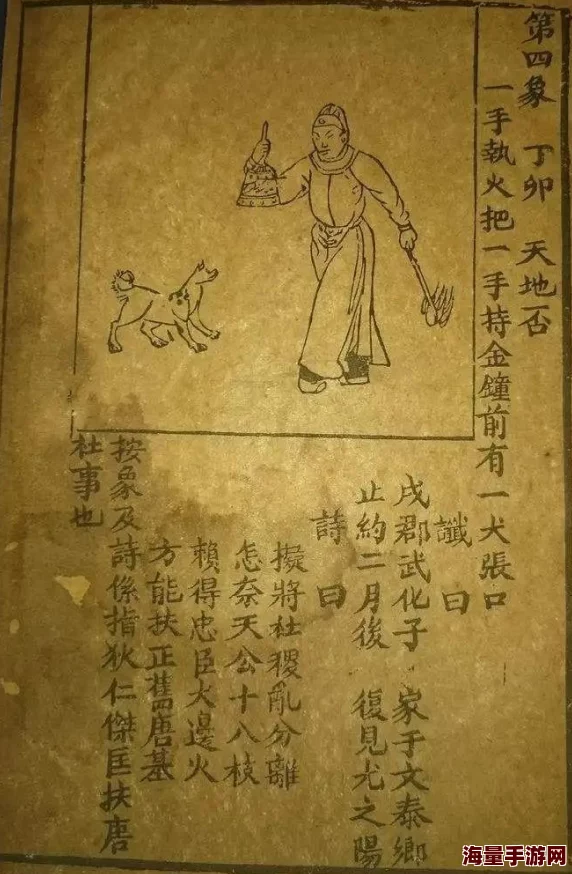 第四象 丁卯 天地否
一手執火把一手持金鐘前有一犬張口
讖曰
戌郡武化子 家于文泰鄉
止約二月後 復見尤之陽
詩曰
擬將社稷亂分離
怎奈天公十八枝
賴得忠臣火邊火
方能扶正舊唐基
按象及詩係指狄仁傑匡扶唐
社事也
海量手游网